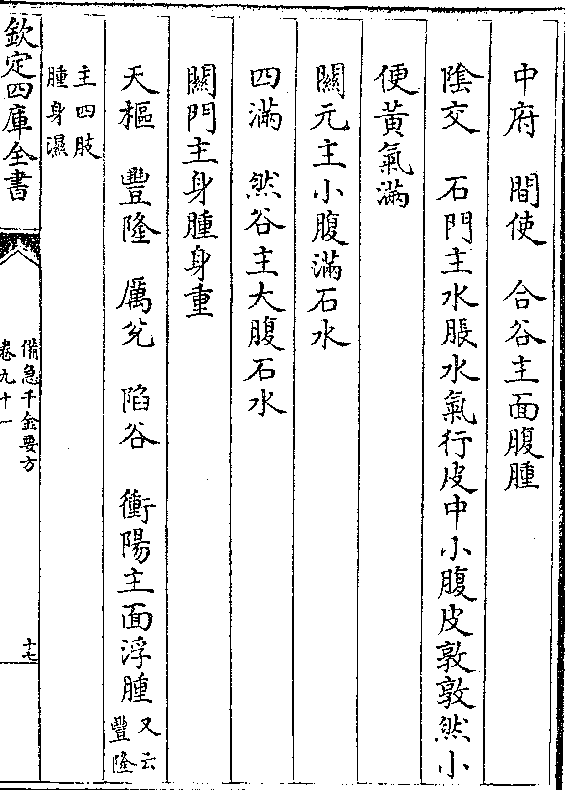 中府　間使　合谷主面腹腫
陰交　石門主水脹水氣行皮中小腹皮敦敦然小
便黃氣滿
關元主小腹滿石水
四滿　然谷主大腹石水
關門主身腫身重
天樞　豐隆　厲兊　陷谷　衝陽主面浮腫又云
豐隆
主四肢
腫身濕
欽定四庫全書
備急千金要方
卷九十一
十七